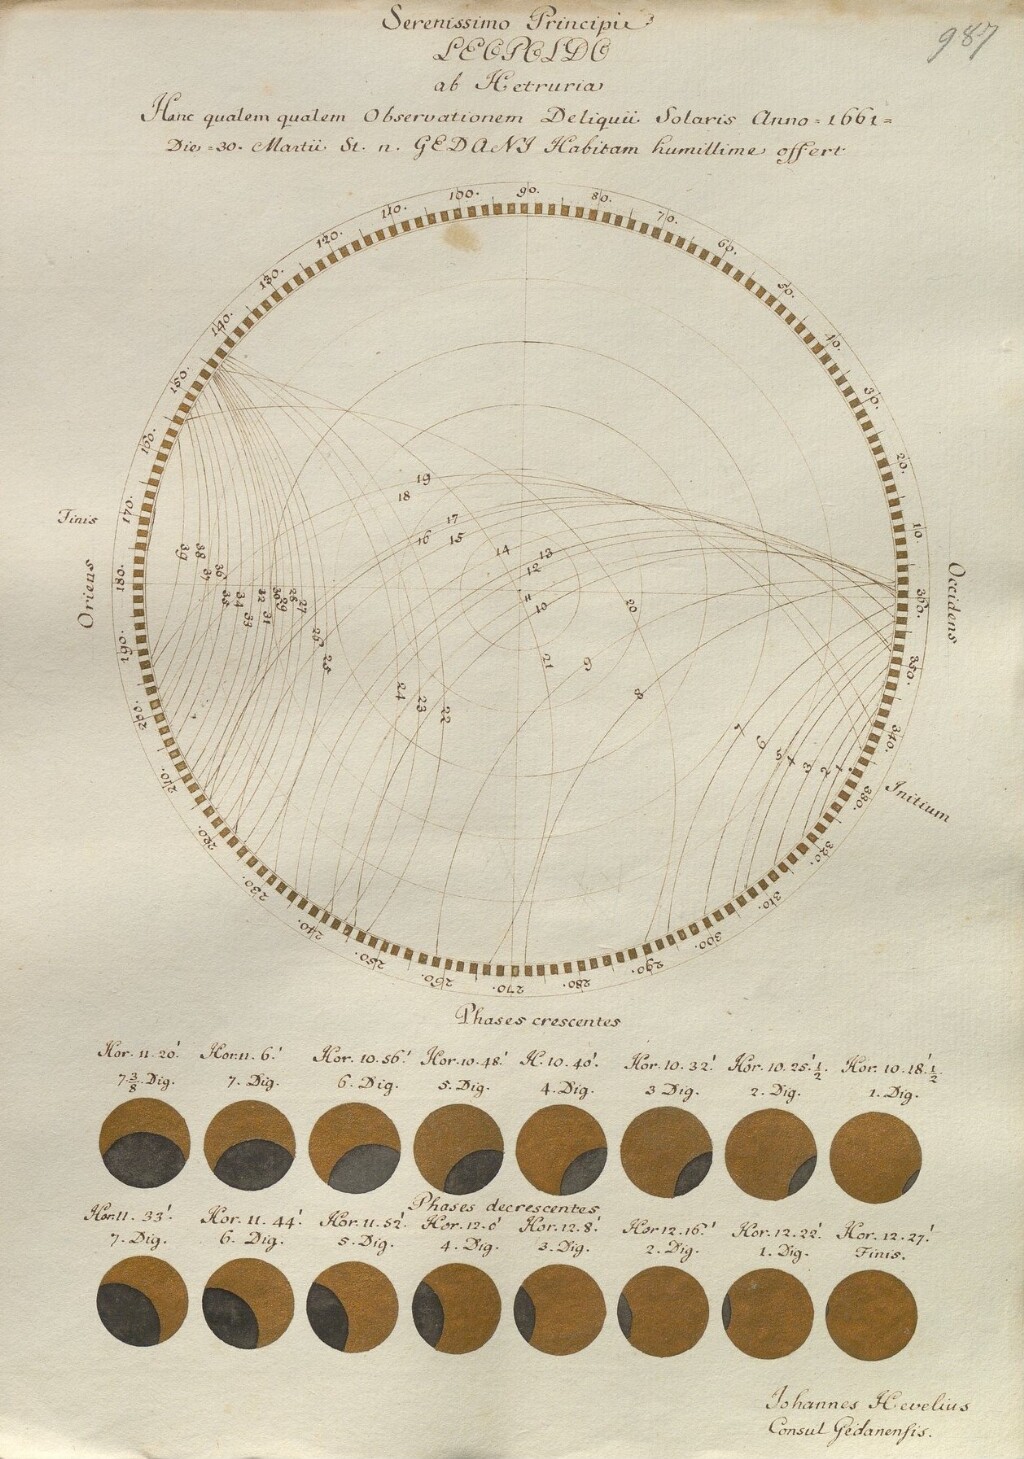 987
Serenissimo Principi
LEOPOLDO
ab Hetruria
Hanc qualem qualem Observationem Deliquii Solaris Anno = 1661 =
Die = 30. Martii St. n. GEDANI Habitam humillime offert
100. 90. 80.
110. 70.
120. 60.
130. 50.
140. 40.
150. 30.
160. 20.
170. 10.
180. 360.
190. 350.
200. 340.
210. 330.
220. 320.
230. 310.
240. 300.
250. 290.
260. 270. 280.
Finis
Oriens
Occidens
Initium
19
18
17
16 15
14 13
12
11
10
20
21 9
8
7
6
5 4 3 2 1
24 23 22
39 38 37 36
35 34 33 32 31 30 29 28 27
25
Phases crescentes
Hor. 11. 20' Hor. 11. 6.' Hor. 10. 56' Hor. 10. 48' H. 10. 40'. Hor. 10. 32' Hor. 10. 25' 1/2 Hor. 10. 18' 1/2
7 3/8 Dig. 7. Dig. 6. Dig. 5. Dig. 4. Dig. 3 Dig. 2. Dig. 1. Dig.
Phases decrescentes
Hor. 11. 33'. Hor. 11. 44'. Hor. 11. 52' Hor. 12. 0' Hor. 12. 8.' Hor 12. 16.' Hor. 12. 22' Hor. 12. 27'
7. Dig. 6. Dig. 5. Dig. 4. Dig. 3. Dig. 2. Dig. 1. Dig. Finis.
Johannes Hevelius
Consul Gedanensis.